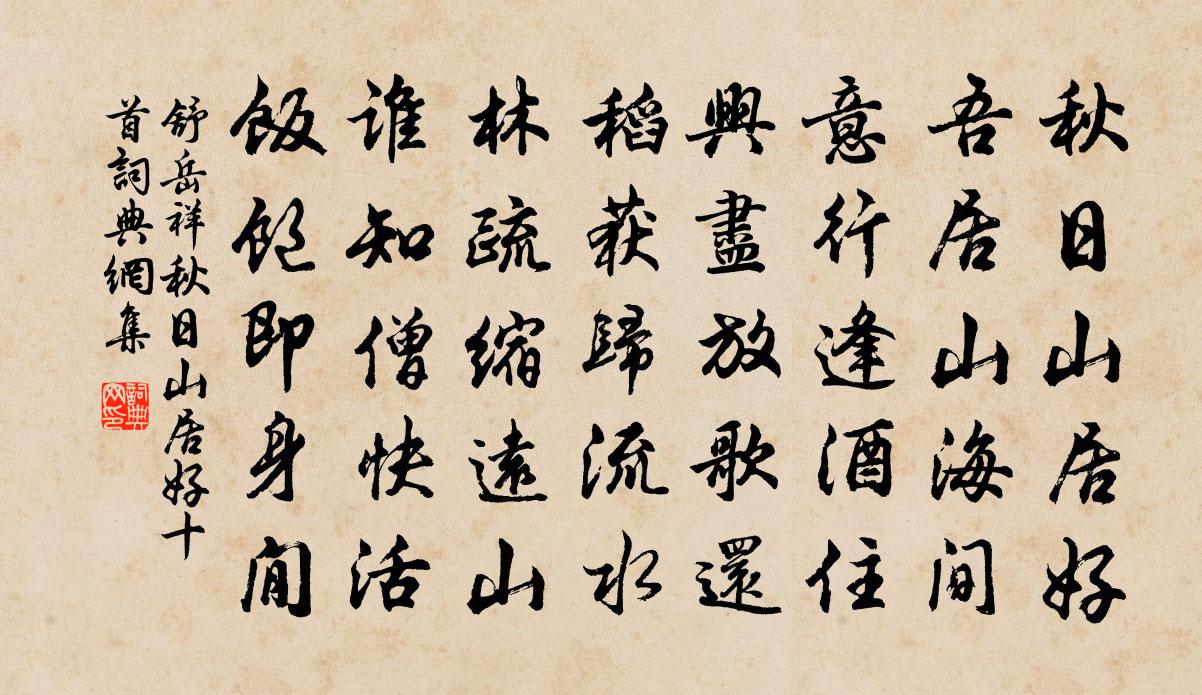 秋日山居好
吾居山海間
意行逢酒住
興盡放歌還
稻获歸流水
林疏縮遠山
谁知僧快活
飯飽即身閒
舒岳祥秋日山居好十
首詞典網集
詞典
网印